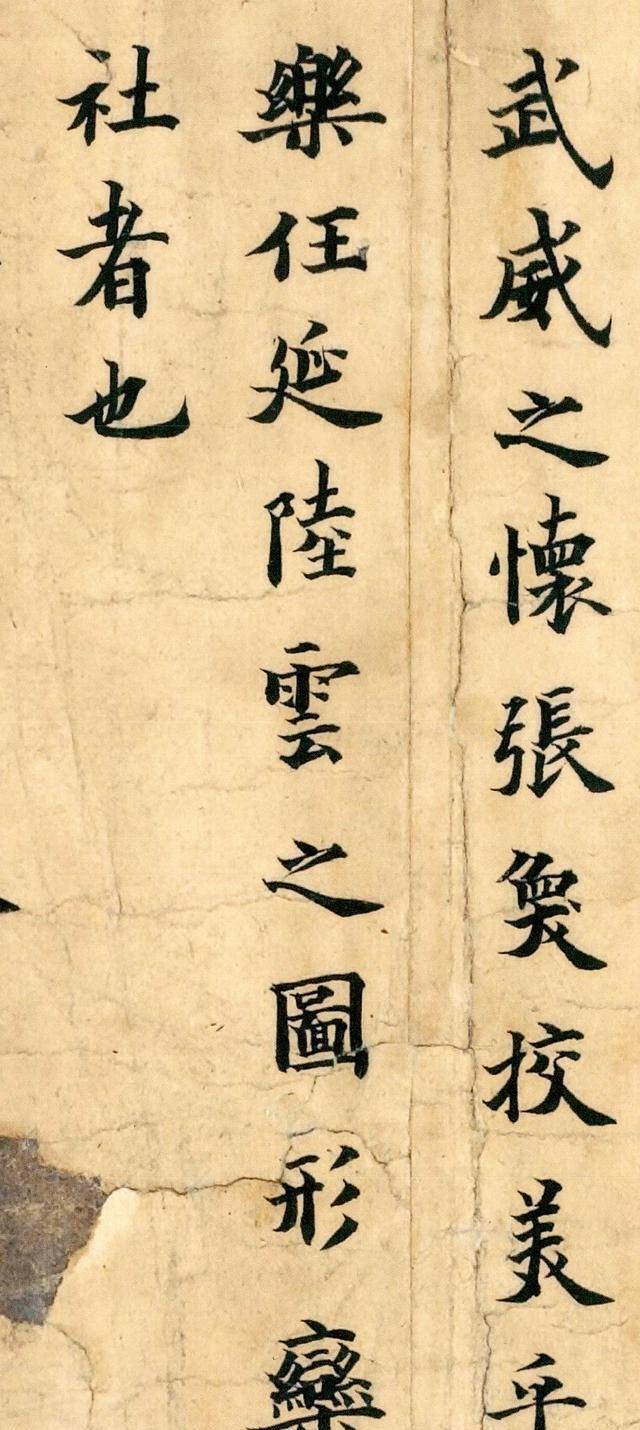 武威之懷張奐校美乎
樂任延陸雲之圖形欒
社者也